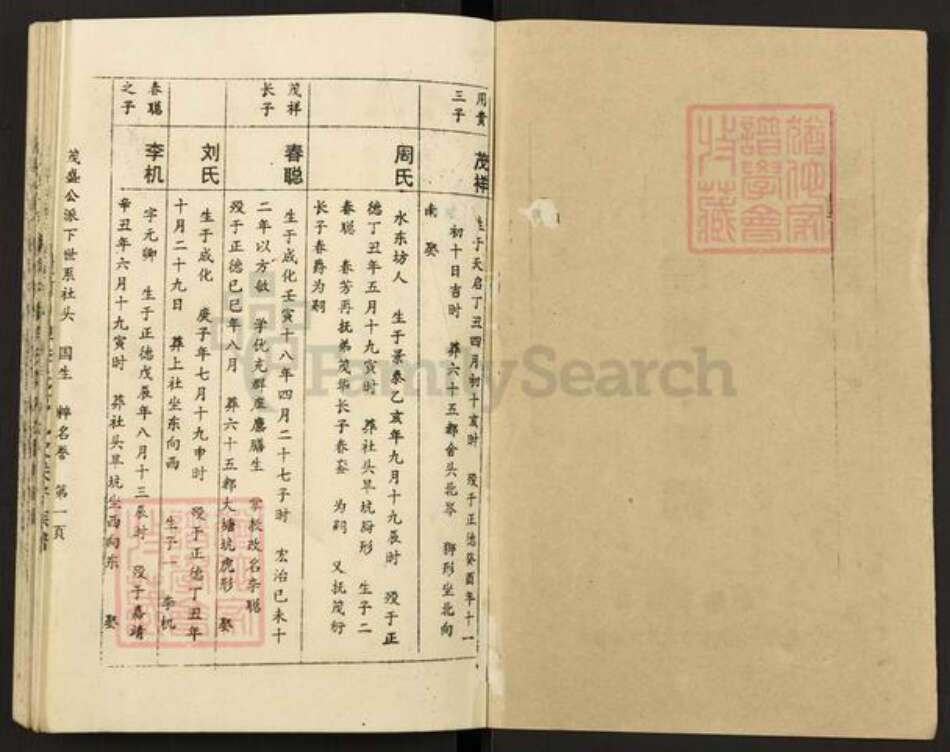 用贵
三子
茂祥
生于天启丁丑四月初十亥时 殁于正德癸酉年十一
初十日吉时 葬六十五都舍头北岑 狮形坐北向
南 娶
周氏
水东坊人 生于景泰乙亥年九月十九辰时 殁于正
德丁丑年五月十九寅时 葬社头旱坑 形 生子二
春聪 春芳再抚弟茂华长子春 为嗣 又抚茂衍
长子春爵为嗣
茂祥
长子
春聪
生于成化壬寅十八年四月二十七子时 宏治已未十
二年以方敏 学优充群庠廪膳生 掌教改名李聪
殁于正德已巳年八月 葬六十五都大塘坑虎形 娶
刘氏
生于成化 庚子年七月十九申时 殁于正德丁丑年
十月二十九日 葬上社坐东向西 生子一 李机
春聪
之子
李机
字元卿 生于正德戊辰年八月十三辰时 殁于嘉靖
辛丑年六月十九寅时 葬社头旱坑坐西向东 娶
茂盛公派下世系社头 国生 粹名誊 第一頁
FamilySearch
猶他家
譜學會
收藏